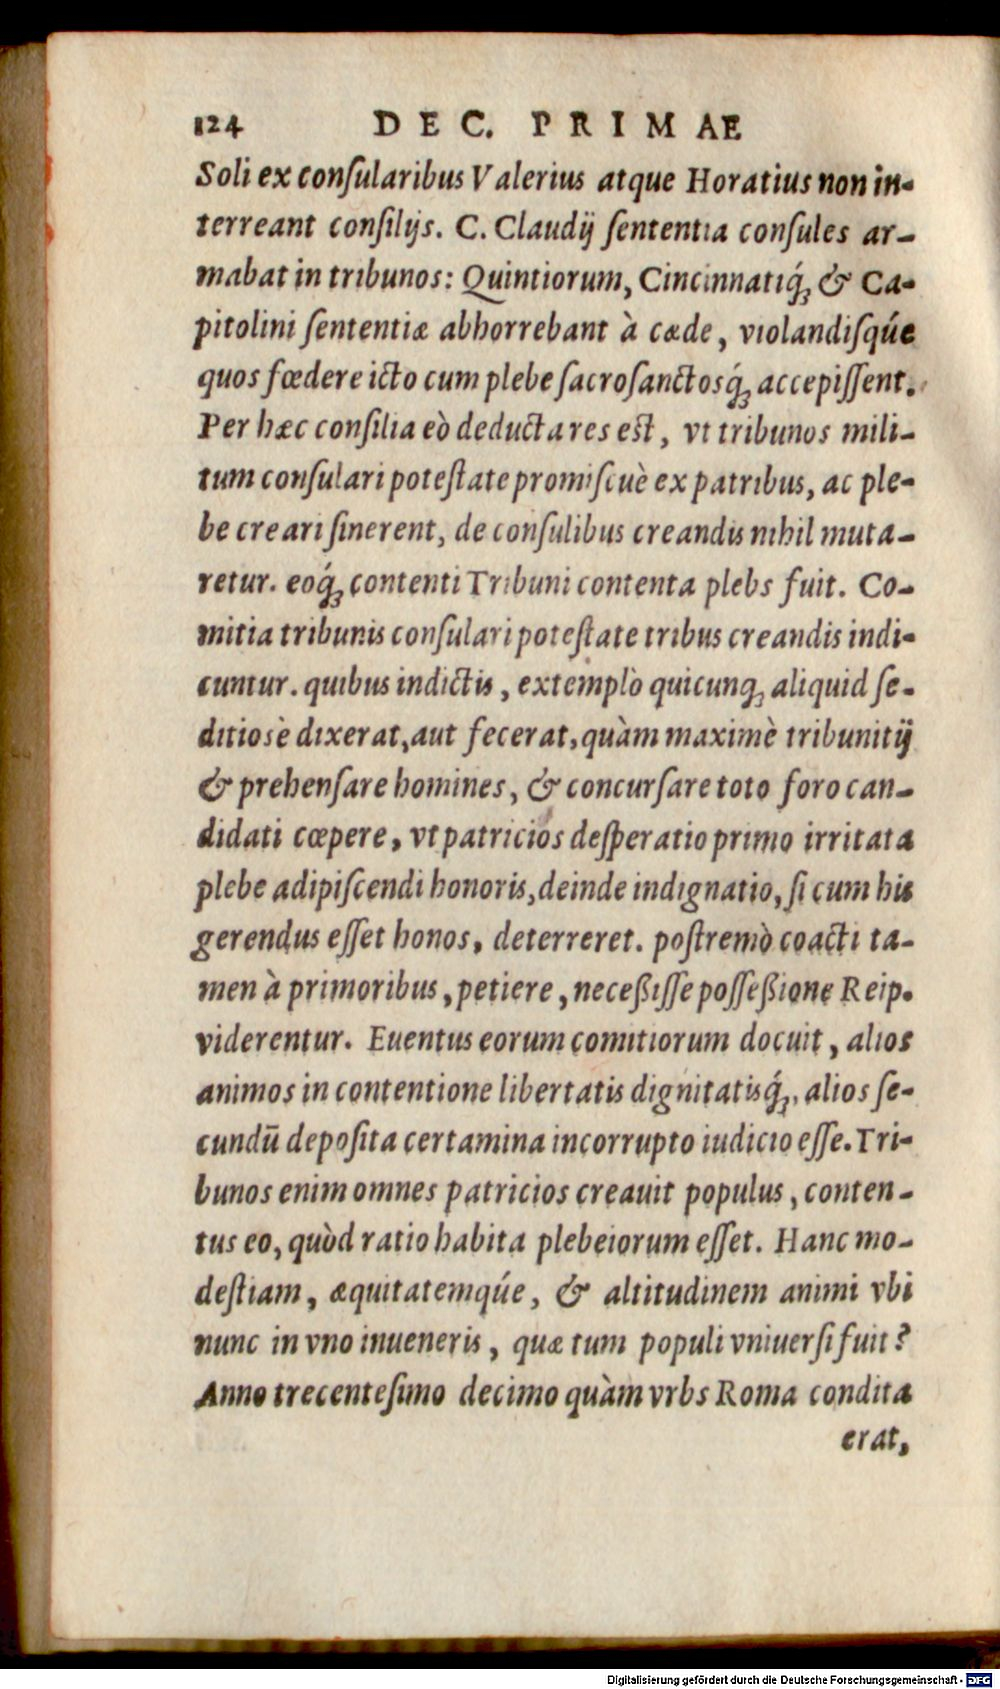 124 DEC. PRIMAE
Soli ex conſularibus Valerius atque Horatius non in-
terreant conſilijs. C. Claudij ſententia conſules ar-
mabat in tribunos: Quintiorum, Cincinnatiq́ꝫ & Ca-
pitolini ſententiæ abhorrebant à cæde, violandiſqúe
quos fœdere icto cum plebe ſacroſanctosq́ꝫ accepiſſent.
Per hæc conſilia eò deducta res eſt, vt tribunos mili-
tum conſulari poteſtate promiſcuè ex patribus, ac ple-
be creari ſinerent, de conſulibus creandis nihil muta-
retur. eoq́ꝫ contenti Tribuni contenta plebs fuit. Co-
mitia tribunis conſulari poteſtate tribus creandis indi-
cuntur. quibus indictis, extemplò quicunqꝫ aliquid ſe-
ditiosè dixerat, aut fecerat, quàm maximè tribunitij
& prehenſare homines, & concurſare toto foro can-
didati cœpere, vt patricios deſperatio primo irritata
plebe adipiſcendi honoris, deinde indignatio, ſi cum his
gerendus eſſet honos, deterreret. poſtremò coacti ta-
men à primoribus, petiere, neceßiſſe poſſeßione Reip.
viderentur. Euentus eorum comitiorum docuit, alios
animos in contentione libertatis dignitatisq́ꝫ, alios ſe-
cundū depoſita certamina incorrupto iudicio eſſe. Tri-
bunos enim omnes patricios creauit populus, conten-
tus eo, quòd ratio habita plebeiorum eſſet. Hanc mo-
deſtiam, æquitatemqúe, & altitudinem animi vbi
nunc in vno inueneris, quæ tum populi vniuerſi fuit?
Anno trecenteſimo decimo quàm vrbs Roma condita
erat,
Digitalisierung gefördert durch die Deutsche Forschungsgemeinschaft - DFG